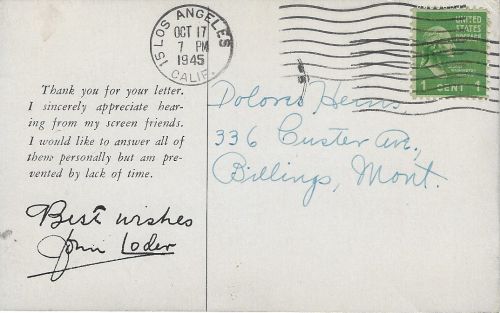 LOS ANGELES
15
OCT 17
7 PM
1945
CALIF.
UNITED
STATES
POSTAGE
1 CENT 1
Thank you for your letter.
I sincerely appreciate hear-
ing from my screen friends.
I would like to answer all of
them personally but am pre-
vented by lack of time.
Best wishes
John Loder
Dolores
336 Custer Av.,
Billings, Mont.